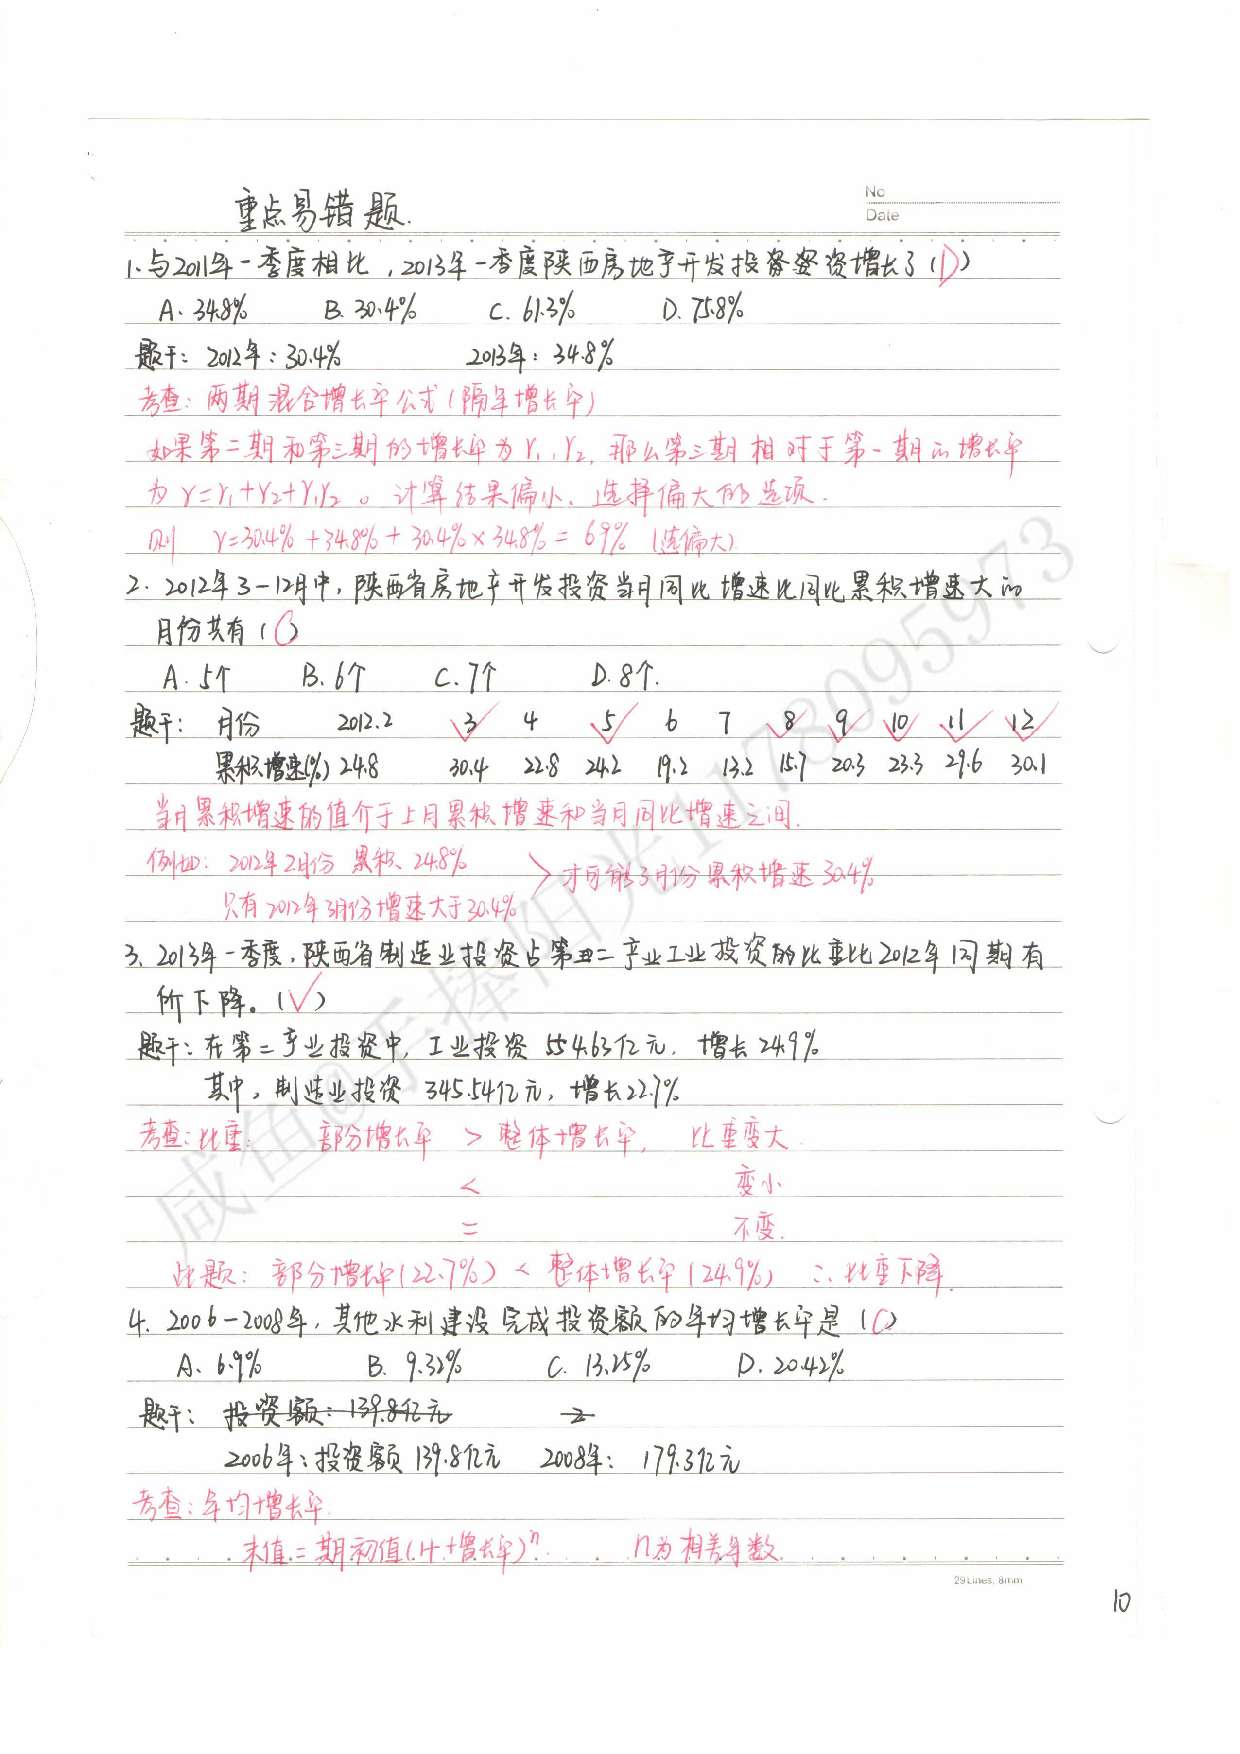 No
重点易错题.
Date
1.与2011年一季度相比,2013年一季度陕西房地产开发投资增长了(D)
A.34.8% B.30.4% C.61.3% D.75.8%
题干:2012年:30.4% 2013年:34.8%
考查:两期混合增长率公式(隔年增长率)
如果第二期和第三期的增长率为r₁,r₂,那么第三期相对于第一期的增长率
为r=r₁+r₂+r₁r₂。计算结果偏小、选择偏大的选项.
则 r=30.4%+34.8%+30.4%×34.8%=69% (选偏大)
2.2012年3-12月中,陕西省房地产开发投资当月同比增速比同比累积增速大的
月份共有(C)
A.5个 B.6个 C.7个 D.8个.
题干: 月份 2012.2 3 4 5 6 7 8 9 10 11 12
累积增速(%) 24.8 30.4 22.8 24.2 19.2 13.2 15.7 20.3 23.3 29.6 30.1
当月累积增速的值介于上月累积增速和当月同比增速之间.
例如:2012年2月份 累积 24.8%
才可能3月份累积增速30.4%
只有2012年3月份增速大于30.4%
3.2013年一季度,陕西省制造业投资占第二产业工业投资的比重比2012年同期有
所下降。(✓)
题干:在第二产业投资中,工业投资554.63亿元,增长24.9%
其中,制造业投资345.54亿元,增长22.7%
考查:比重: 部分增长率 > 整体增长率, 比重变大.
< 变小
= 不变.
此题:部分增长率(22.7%)<整体增长率(24.9%) ∴比重下降.
4.2006-2008年,其他水利建设完成投资额的年均增长率是(C)
A.6.9% B.9.32% C.13.25% D.20.42%
题干:投资额:139.8亿元 2
2006年:投资额139.8亿元 2008年:179.3亿元
考查:年均增长率
末值=期初值(1+增长率)ⁿ n为相差年数
29Lines, 8mm
10
咸鱼@手捧阳光1178095973